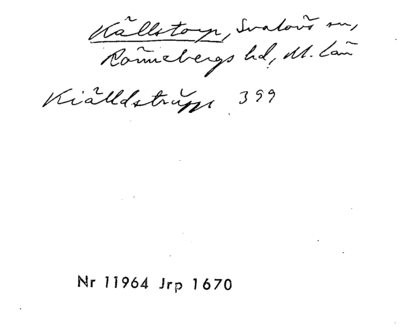 Källstorp, Svalövs sn,
Rönnebergs hd, M. län
Kiälldstrŭpp 399
Nr 11964 Jrp 1670